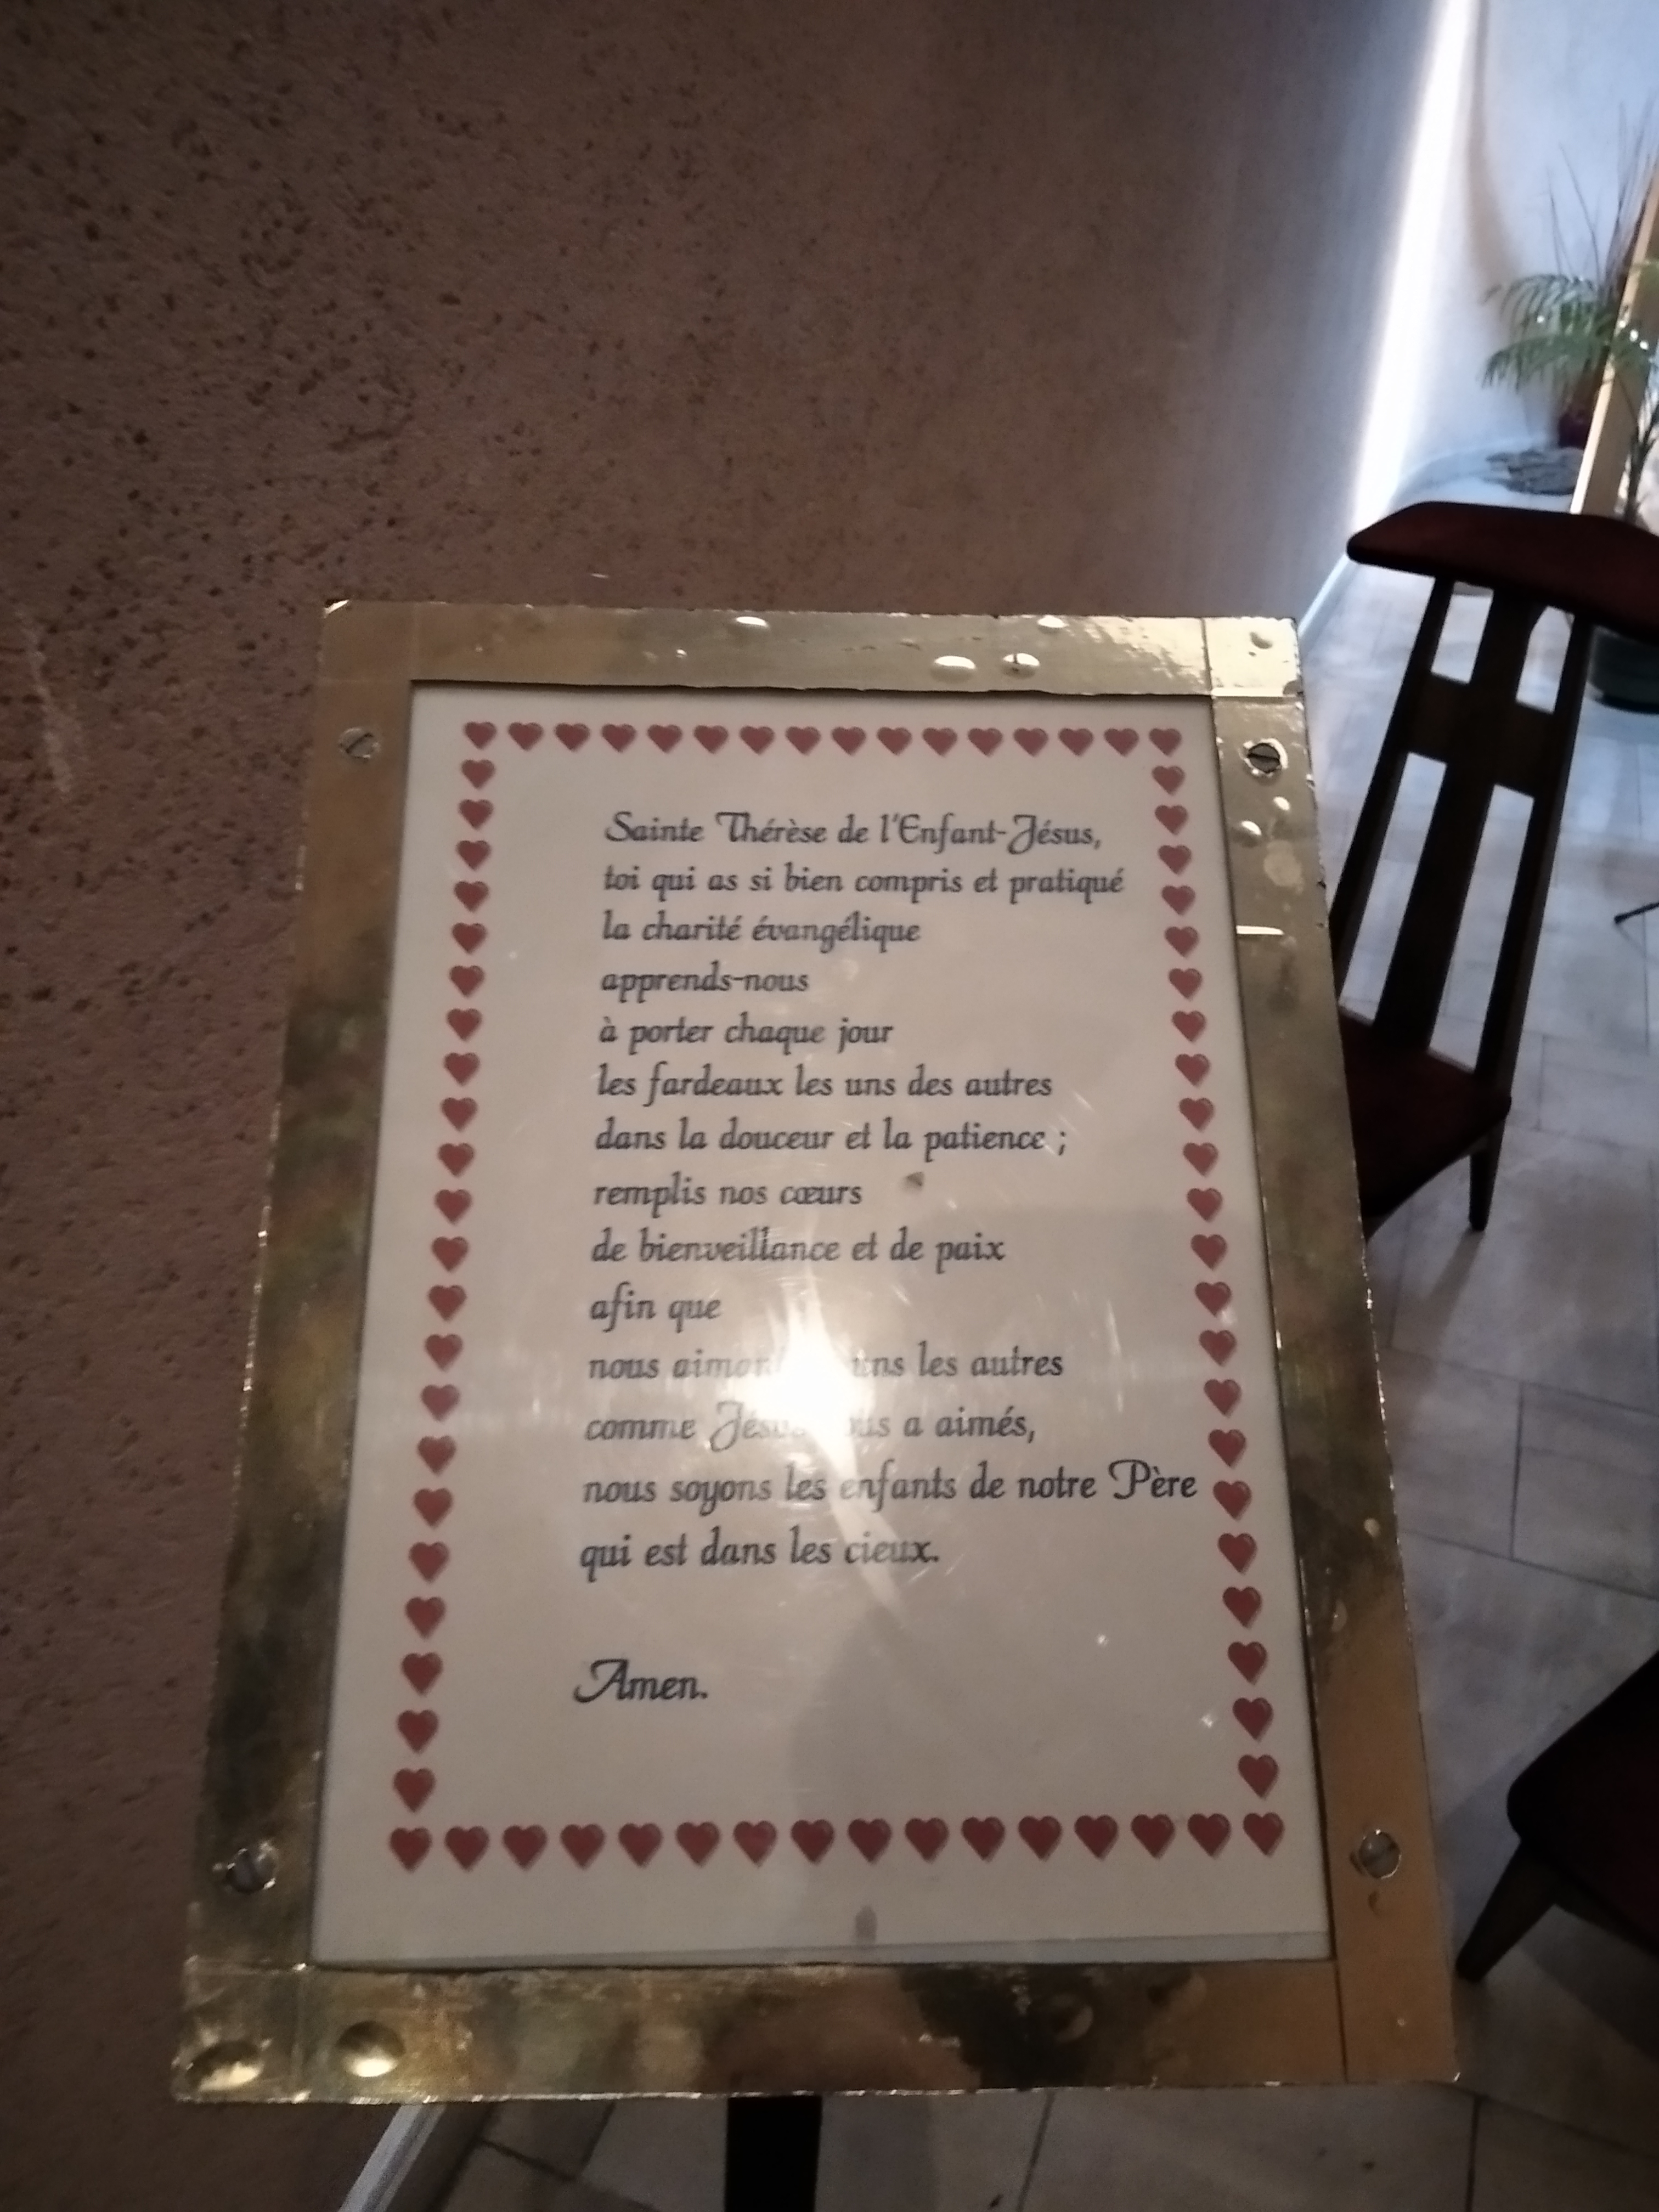 Sainte Thérèse de l'Enfant-Jésus,
toi qui as si bien compris et pratiqué
la charité évangélique
apprends-nous
à porter chaque jour
les fardeaux les uns des autres
dans la douceur et la patience ;
remplis nos cœurs
de bienveillance et de paix
afin que
nous uns les autres
comme Jésus a aimés,
nous soyons les enfants de notre Père
qui est dans les cieux.
Amen.